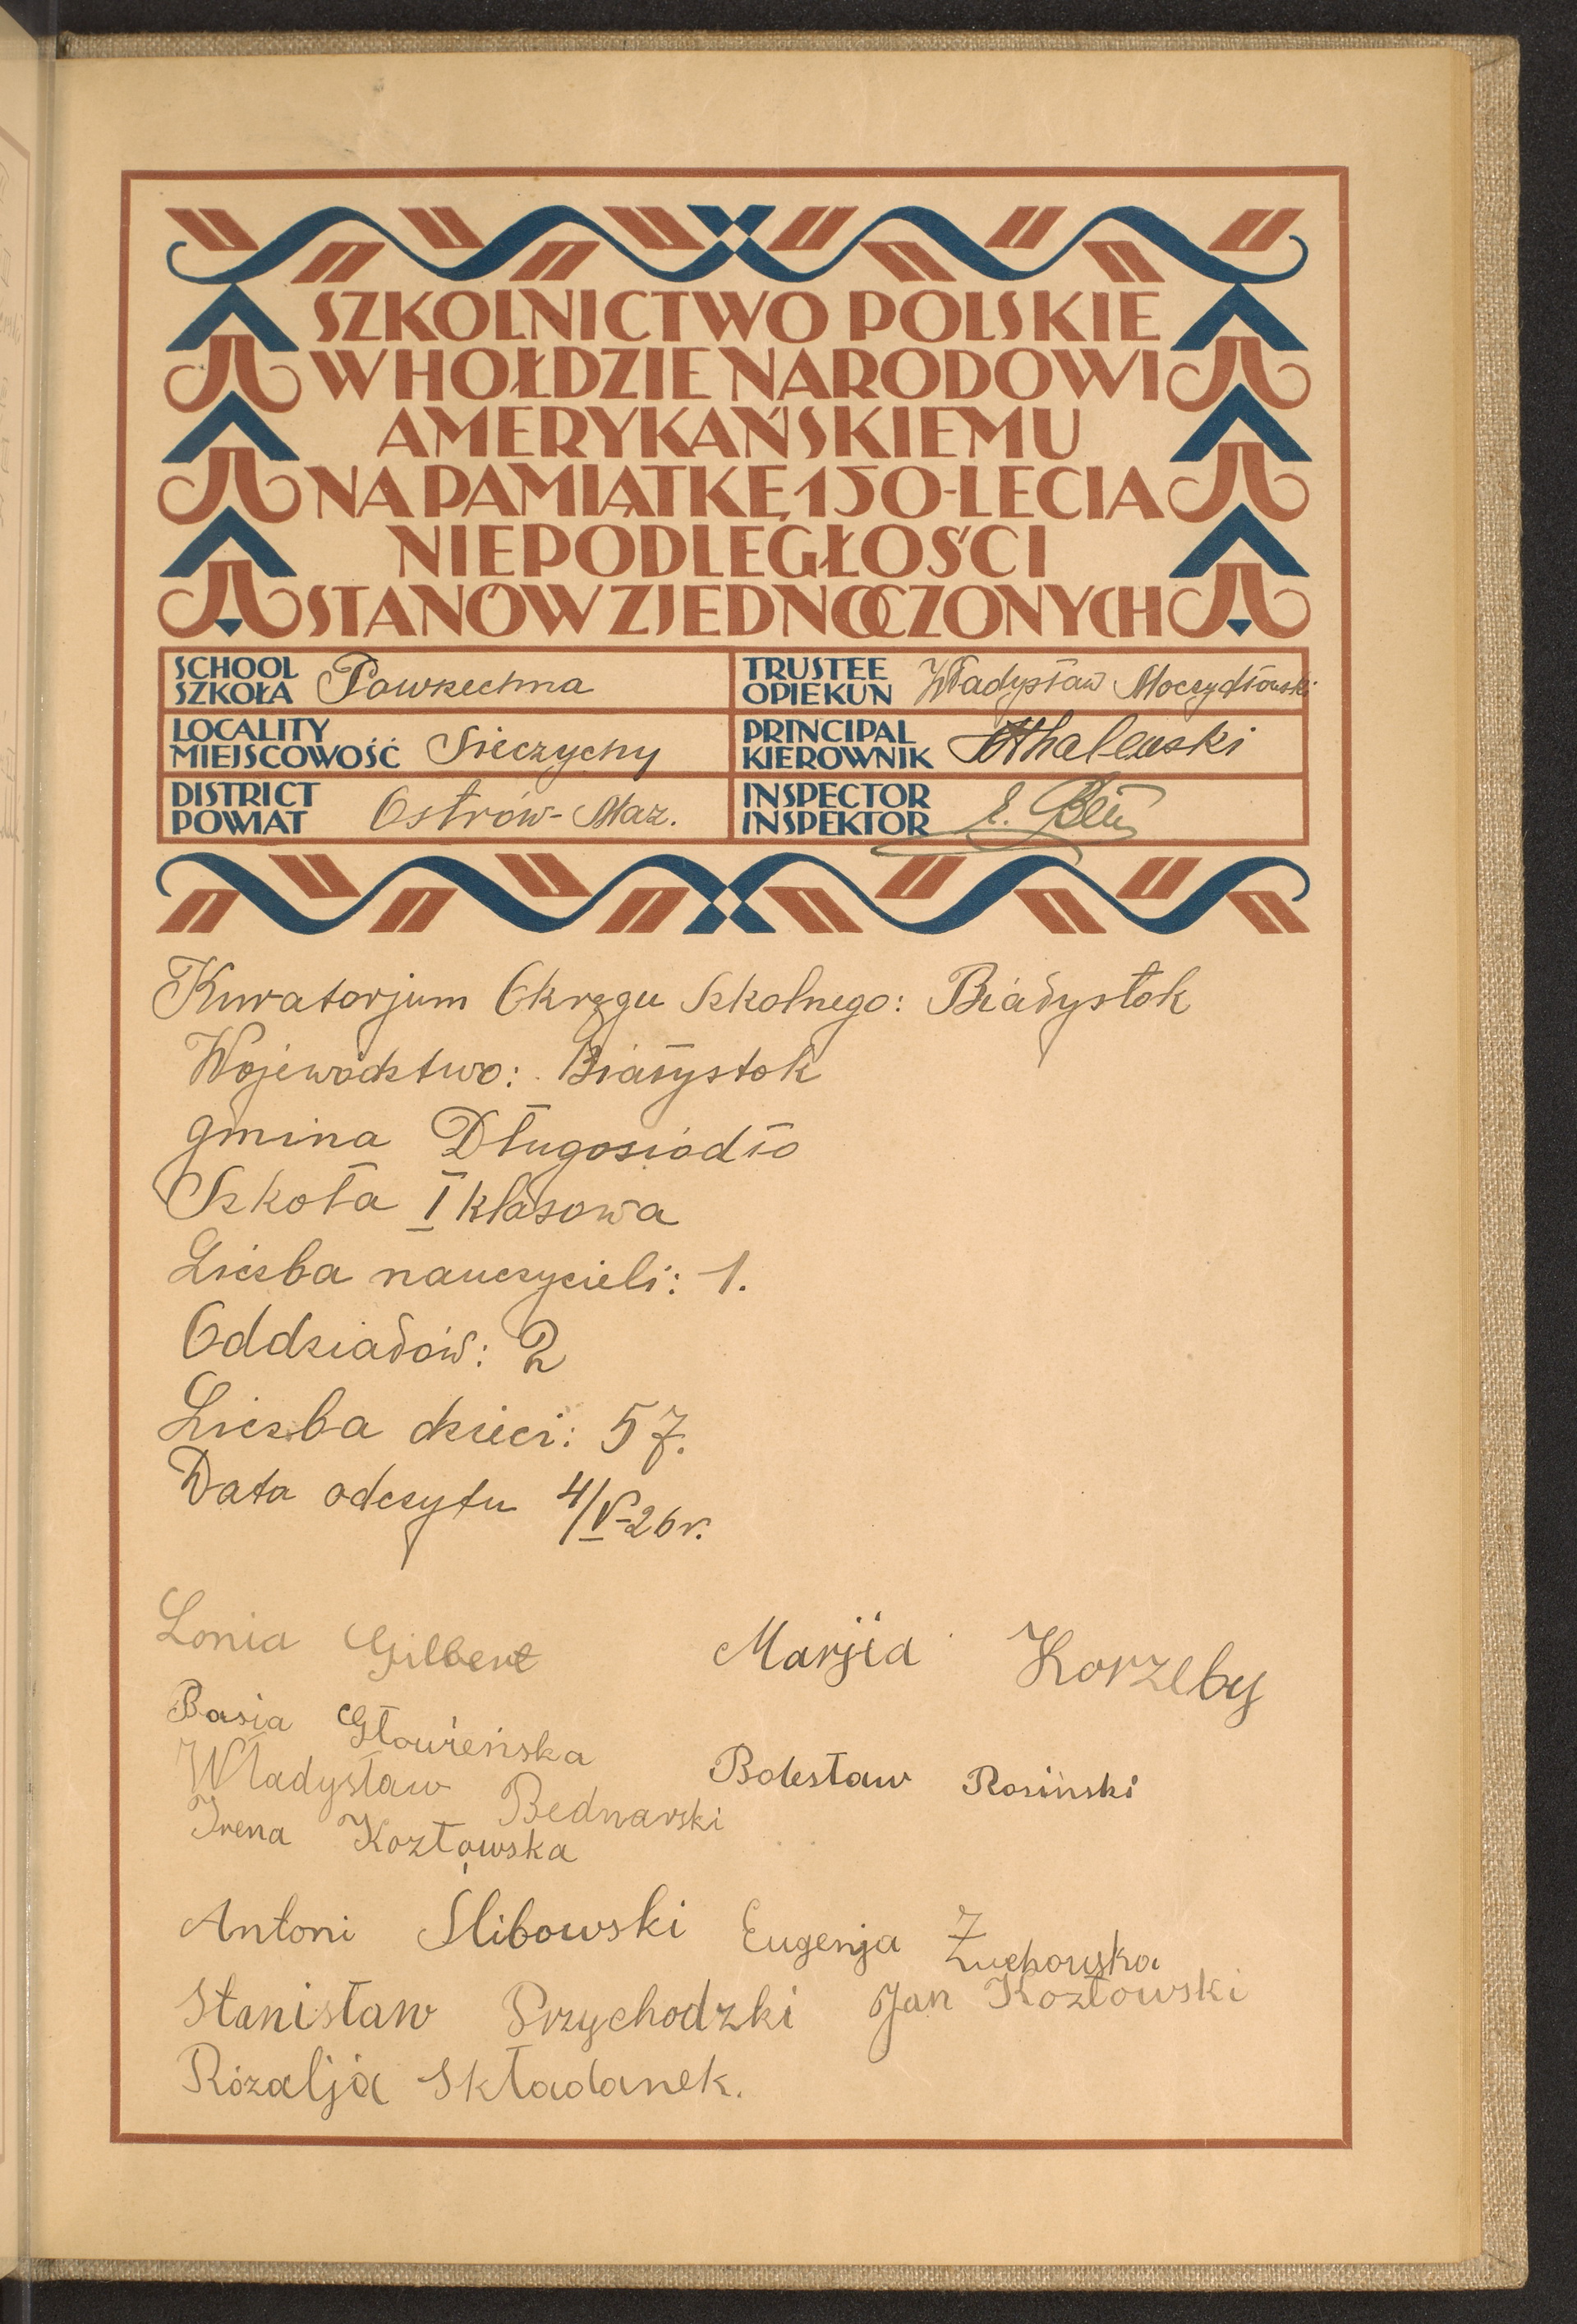 SZKOLNICTWO POLSKIE
W HOŁDZIE NARODOWI
AMERYKAŃSKIEMU
NA PAMIĄTKĘ 150-LECIA
NIEPODLEGŁOŚCI
STANÓW ZJEDNOCZONYCH
SCHOOL
SZKOŁA Powszechna
TRUSTEE
OPIEKUN Władysław Moczydłowski
LOCALITY
MIEJSCOWOŚĆ Sieczychy
PRINCIPAL
KIEROWNIK
DISTRICT
POWIAT Ostrów-Maz.
INSPECTOR
INSPEKTOR
Kuratorjum Okręgu Szkolnego: Białystok
Województwo: Białystok
gmina Długosiodło
Szkoła I klasowa
Liczba nauczycieli: 1.
Oddziałów: 2
Liczba dzieci: 57.
Data odczytu 4/V-26r.
Lonia Gilbert
Marjia Korzeby
Basia Głowieńska
Władysław Bednarski
Bolesław Rosiński
Irena Kozłowska
Antoni Ślibowski
Eugenja Żuchowska
Stanisław Przychodzki
Jan Kozłowski
Rózalja Składanek.